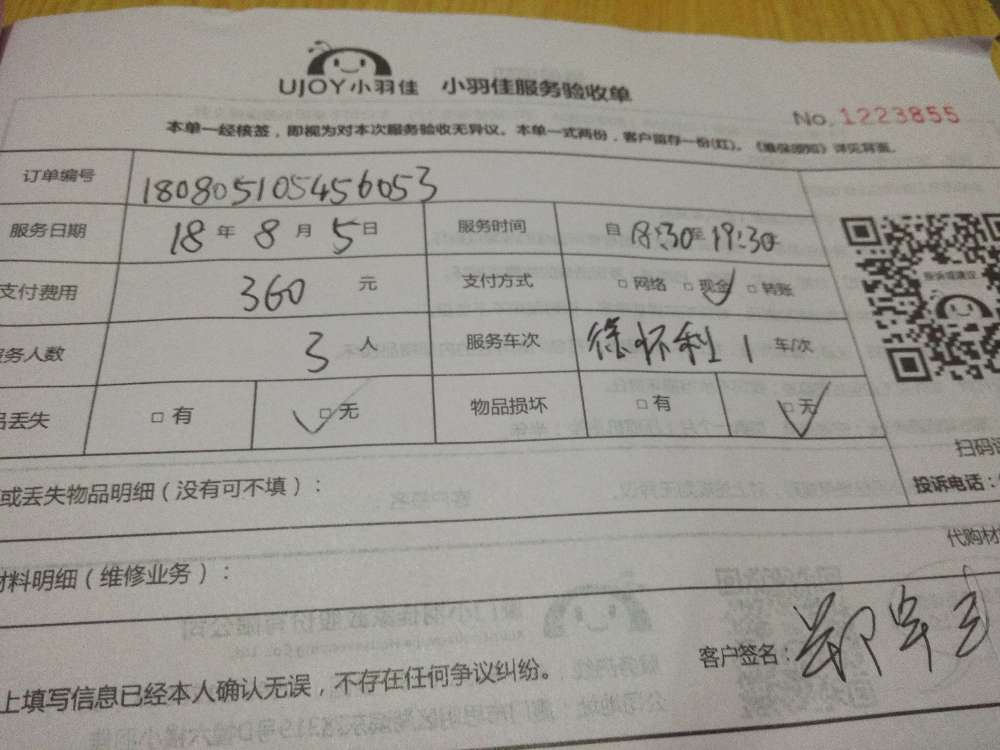 UJOY小羽佳 小羽佳服务验收单
No. 1223855
本单一经核签，即视为对本次服务验收无异议。本单一式两份，客户留存一份(红)。《维保须知》详见背面。
订单编号 180805105456053
服务日期 18 年 8 月 5 日 服务时间 自 18:30 至 19:30
支付费用 360 元 支付方式 □ 网络 □ 现金 □ 转账
服务人数 3 人 服务车次 徐怀利 1 车/次
品丢失 □ 有 □ 无 物品损坏 □ 有 □ 无
扫码
投诉电话：
或丢失物品明细（没有可不填）：
代购材
材料明细（维修业务）：
客户签名：
上填写信息已经本人确认无误，不存在任何争议纠纷。